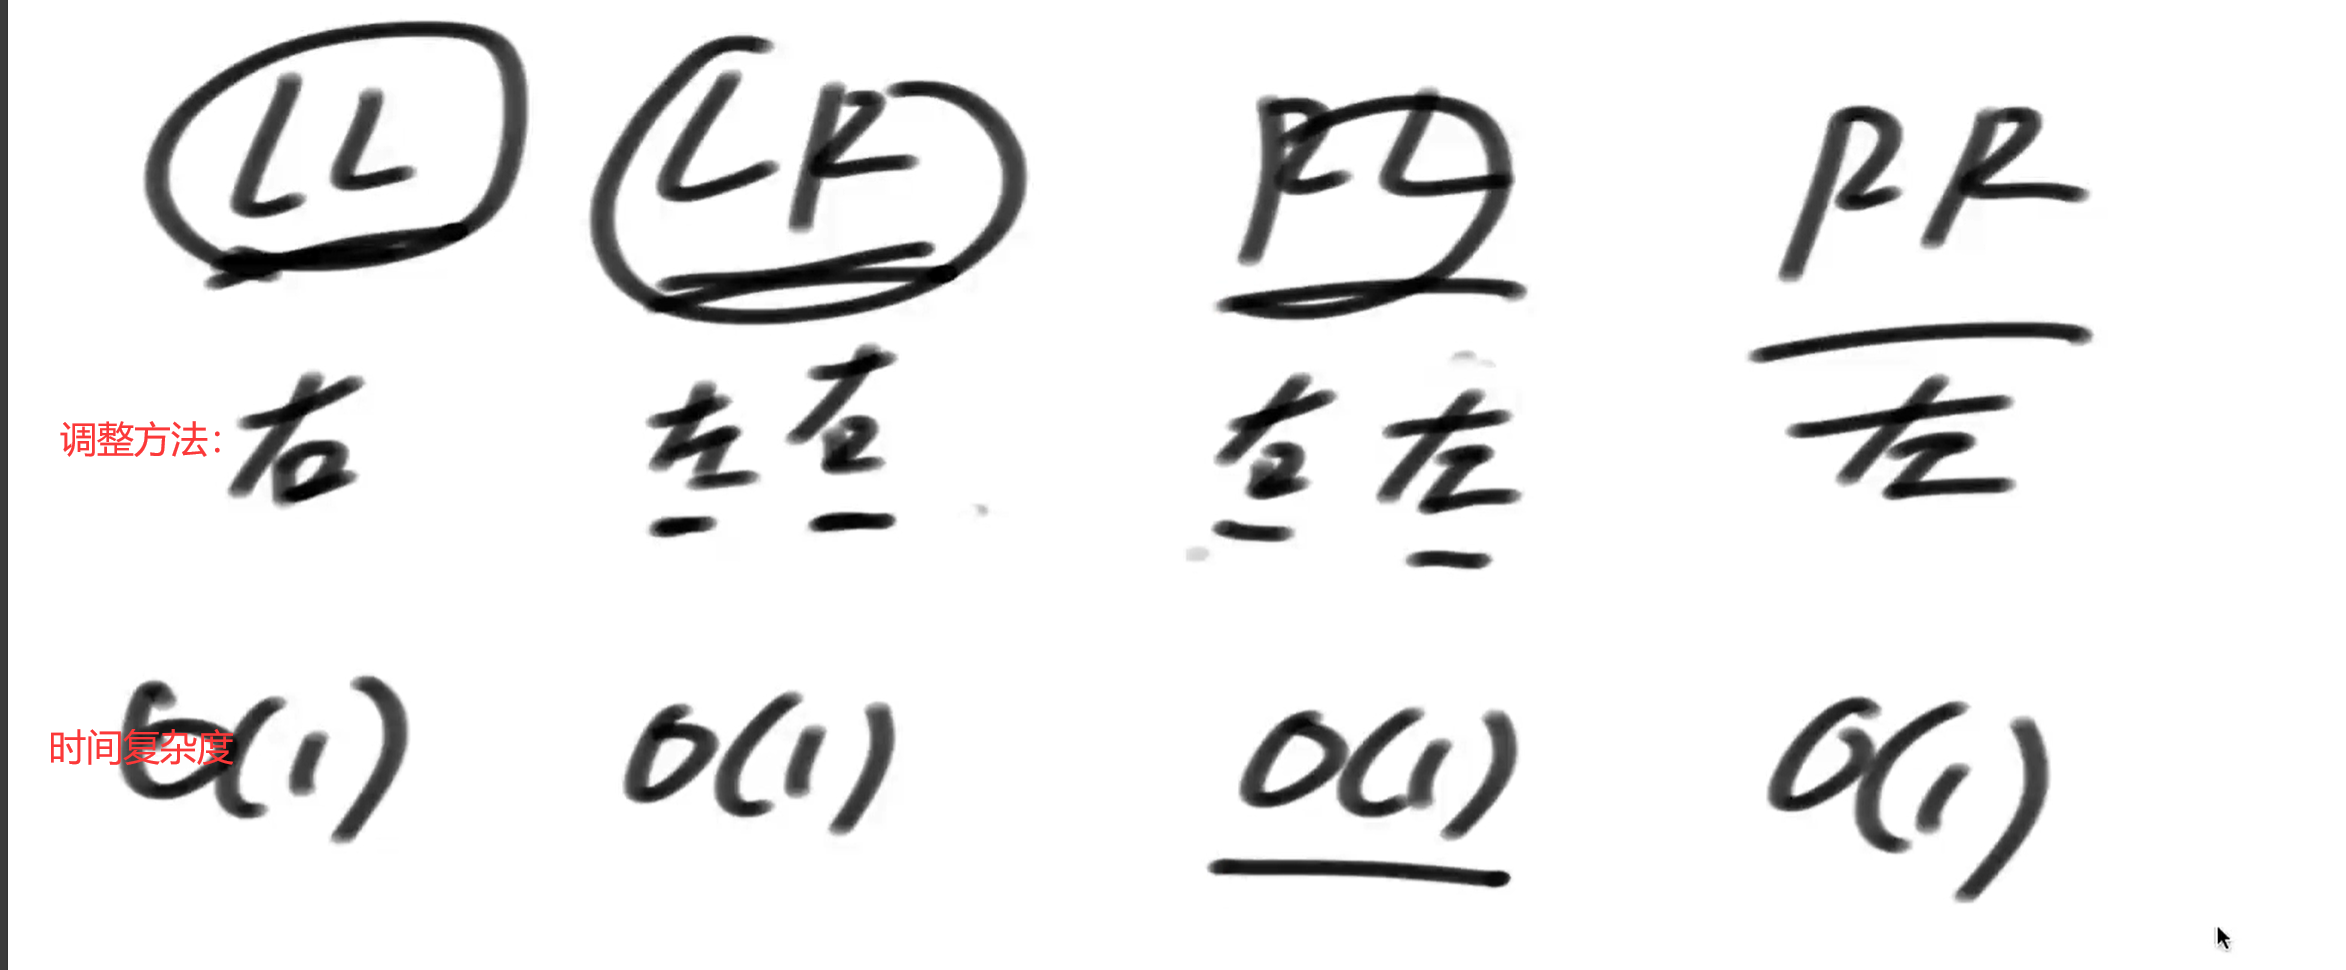 LL LR RL RR
调整方法：右 左右 右左 左
时间复杂度 O(1) O(1) O(1) O(1)